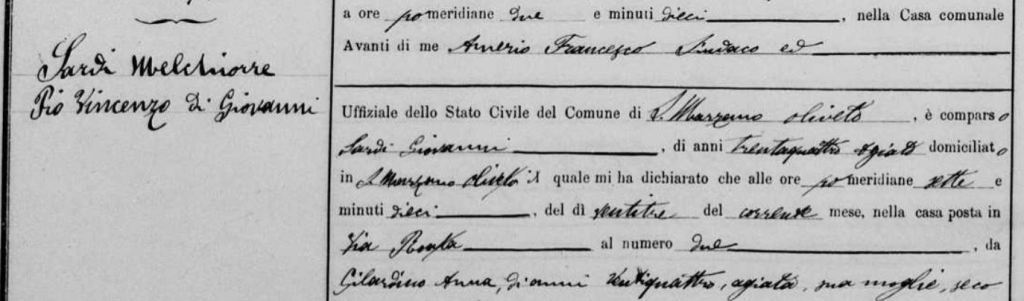 Sardi Melchiorre
Pio Vincenzo di Giovanni
a ore pomeridiane due e minuti dieci, nella Casa comunale
Avanti di me Amerio Francesco Sindaco ed
Uffiziale dello Stato Civile del Comune di S. Marzano Oliveto, è comparso
Sardi Giovanni, di anni trentaquattro agiato domiciliato
in S. Marzano Oliveto il quale mi ha dichiarato che alle ore pomeridiane sette e
minuti dieci, del dì ventitre del corrente mese, nella casa posta in
Via al numero due, da
Gilardino Anna, di anni ventiquattro, agiata, sua moglie, seco